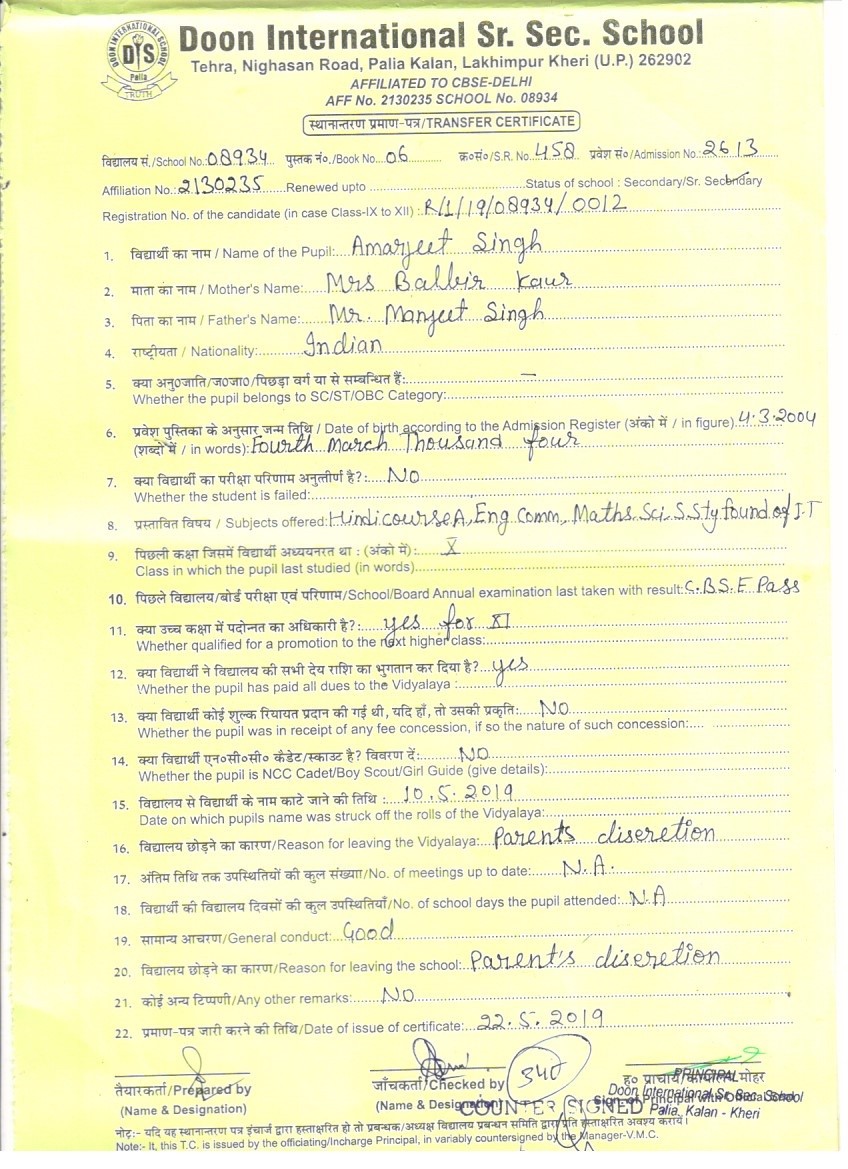 DOON INTERNATIONAL SCHOOL
DIS
Palia
TRUTH
Doon International Sr. Sec. School
Tehra, Nighasan Road, Palia Kalan, Lakhimpur Kheri (U.P.) 262902
AFFILIATED TO CBSE-DELHI
AFF No. 2130235 SCHOOL No. 08934
स्थानान्तरण प्रमाण-पत्र/TRANSFER CERTIFICATE
विद्यालय सं./School No.: 08934 पुस्तक नं०/Book No... 06 क्र०सं०/S.R. No. 458 प्रवेश सं०/Admission No.: 2613
Affiliation No.: 2130235 Renewed upto ........ Status of school : Secondary/Sr. Secondary
Registration No. of the candidate (in case Class-IX to XII) : R/1/19/08934/0012
1. विद्यार्थी का नाम / Name of the Pupil: Amarjeet Singh
2. माता का नाम / Mother's Name: Mrs Balbir Kaur
3. पिता का नाम / Father's Name: Mr. Manjeet Singh
4. राष्ट्रीयता / Nationality: Indian
5. क्या अनु०जाति/ज०जा०/पिछड़ा वर्ग या से सम्बन्धित हैं: —
Whether the pupil belongs to SC/ST/OBC Category:
6. प्रवेश पुस्तिका के अनुसार जन्म तिथि / Date of birth according to the Admission Register (अंको में / in figure). 4.3.2004
(शब्दों में / in words): Fourth March Thousand four
7. क्या विद्यार्थी का परीक्षा परिणाम अनुत्तीर्ण है?: NO
Whether the student is failed:
8. प्रस्तावित विषय / Subjects offered: Hindi course A, Eng Comm, Maths Sci. S.Sty found of I.T
9. पिछली कक्षा जिसमें विद्यार्थी अध्ययनरत था : (अंको में): X
Class in which the pupil last studied (in words)
10. पिछले विद्यालय/बोर्ड परीक्षा एवं परिणाम/School/Board Annual examination last taken with result: C.B.S.E Pass
11. क्या उच्च कक्षा में पदोन्नत का अधिकारी है?: yes for XI
Whether qualified for a promotion to the next higher class:
12. क्या विद्यार्थी ने विद्यालय की सभी देय राशि का भुगतान कर दिया है? yes
Whether the pupil has paid all dues to the Vidyalaya :
13. क्या विद्यार्थी कोई शुल्क रियायत प्रदान की गई थी, यदि हाँ, तो उसकी प्रकृति: NO
Whether the pupil was in receipt of any fee concession, if so the nature of such concession:
14. क्या विद्यार्थी एन०सी०सी० कैडेट/स्काउट है? विवरण दें: NO
Whether the pupil is NCC Cadet/Boy Scout/Girl Guide (give details):
15. विद्यालय से विद्यार्थी के नाम काटे जाने की तिथि : 10.5.2019
Date on which pupils name was struck off the rolls of the Vidyalaya:
16. विद्यालय छोड़ने का कारण/Reason for leaving the Vidyalaya: Parent's disretion
17. अंतिम तिथि तक उपस्थितियों की कुल संख्या/No. of meetings up to date: N.A.
18. विद्यार्थी की विद्यालय दिवसों की कुल उपस्थितियाँ/No. of school days the pupil attended: N.A
19. सामान्य आचरण/General conduct: Good
20. विद्यालय छोड़ने का कारण/Reason for leaving the school: Parent's disretion
21. कोई अन्य टिप्पणी/Any other remarks: NO
22. प्रमाण-पत्र जारी करने की तिथि/Date of issue of certificate: 22.5.2019
तैयारकर्ता/Prepared by जाँचकर्ता/Checked by 340 ह० प्राचार्य/कार्यालय मोहर
PRINCIPAL
(Name & Designation) (Name & Designation) Sign of Principal with Official Seal
Doon International Sr. Sec. School
COUNTER SIGNED Palia, Kalan - Kheri
नोट:- यदि यह स्थानान्तरण पत्र इंचार्ज द्वारा हस्ताक्षरित हो तो प्रबन्धक/अध्यक्ष विद्यालय प्रबन्धन समिति द्वारा प्रति हस्ताक्षरित अवश्य करायें।
Note:- It, this T.C. is issued by the officiating/Incharge Principal, in variably countersigned by the Manager-V.M.C.